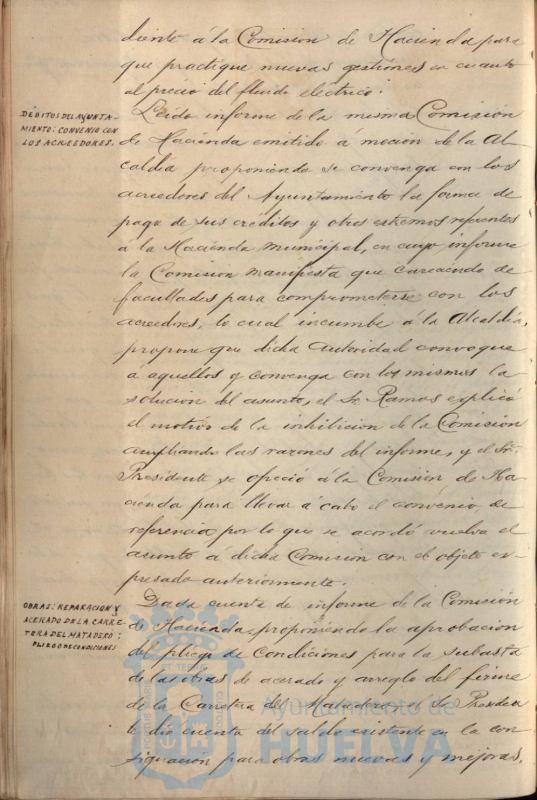 diente á la Comision de Hacienda para
que practique nuevas gestiones en cuanto
al precio del fluido eléctrico.
DÉBITOS DEL AYUNTA-
MIENTO: CONVENIO CON
LOS ACREEDORES.
Leido informe de la misma Comisión
de Hacienda emitido á mocion de la Al-
caldia proponiendo se convenga con los
acreedores del Ayuntamiento la forma de
pago de sus créditos y otros estremos referentes
á la Hacienda municipal, en cuyo informe
la Comisión manifiesta que careciendo de
facultades para comprometerse con los
acreedores, lo cual incumbe á la Alcaldia,
propone que dicha autoridad convoque
a aquellos y convenga con los mismos la
solucion del asunto, el Sr. Ramos esplicó
el motivo de la inhibicion de la Comisión
ampliando las razones del informe, y el Sr.
Presidente se ofreció á la Comisión de Ha-
cienda para llevar á cabo el convenio de
referencia, por lo que se acordó vuelva el
asunto á dicha Comision con el objeto ex-
presado anteriormente.
OBRAS: REPARACION Y
ACERADO DE LA CARRE-
TERA DEL MATADERO:
PLIEGO DE CONDICIONES
Dada cuenta de informe de la Comisión
de Hacienda, proponiendo la aprobacion
del pliego de condiciones para la subasta
de las obras de acerado y arreglo del firme
de la Carretera del Matadero, el Sr. Presiden-
te dió cuenta del saldo existente en la con-
signacion para obras nuevas y mejoras,
Ayuntamiento de
HUELVA